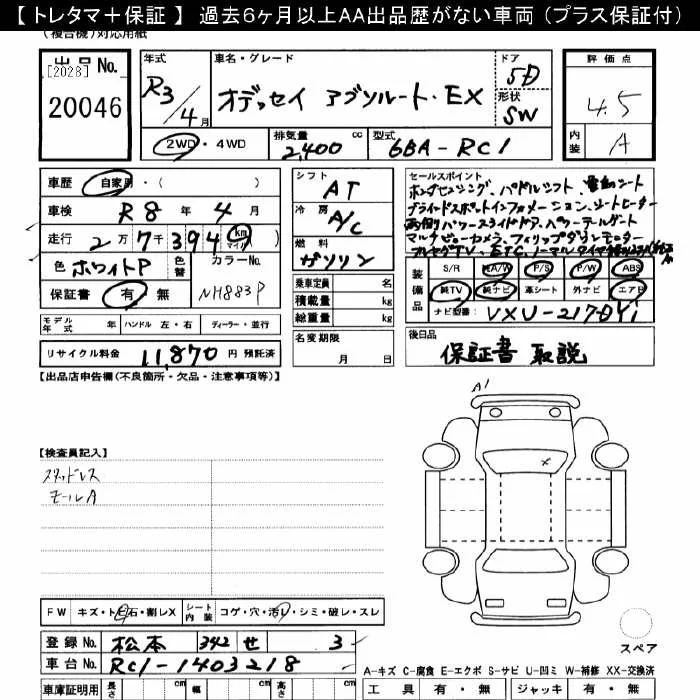 【 トレタマ＋保証 】 過去６ヶ月以上ＡＡ出品歴がない車両 （プラス保証付）
（複合機）対応用紙
出品 No.
[2028]
20046
年式 R3/4月
車名・グレード オデッセイ アブソルート・EX
ドア 5D
形状 SW
評価点 4.5
内装 A
2WD・4WD
排気量 2,400 cc
型式 6BA-RC1
車歴 自家用・（ ）
車検 R8年 4月
走行 2万7千394 km マイル
色 ホワイトP 色替 カラーNo. NH883P
保証書 有・無
シフト AT
冷房 A/C
燃料 ガソリン
乗車定員 名
積載量 kg
総重量 kg
セールスポイント
ホンダセンシング、パドルシフト、電動シート
ブラインドスポットインフォメーション、シートヒーター
両側パワースライドドア、パワーテールゲート
マルチビューカメラ、フィリップダウンモニター
フルセグTV、ETC、ノーマルタイヤ
装備品 S/R A/W P/S P/W ABS
純TV 純ナビ 革シート 外ナビ エアB
ナビ型番 VXU-217DYi
モデル年式 年 ハンドル 左・右 ディーラー・並行
リサイクル料金 11,870 円 預託済
名変期限 月 日
後日品 保証書 取説
【出品店申告欄（不良箇所・欠品・注意事項等）】
A1
【検査員記入】
スタッドレス
モールA
X
FW キズ・トビ石・割レX シート内装 コゲ・穴・汚レ・シミ・破レ・スレ
登録No. 松本 342 せ 3
車台No. RC1-1403218
スペア
車庫証明用 長さ cm 幅 cm 高さ cm
A-キズ C-腐食 E-エクボ S-サビ U-凹ミ W-補修 XX-交換済
工具 有・無 ジャッキ 有・無